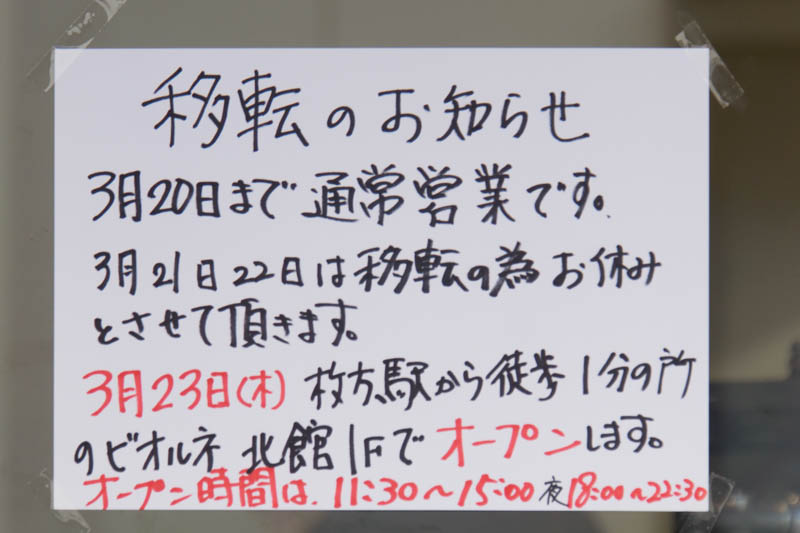 移転のお知らせ
3月20日まで通常営業です。
3月21日22日は移転の為お休み
とさせて頂きます。
3月23日(木) 枚方駅から徒歩1分の所
のビオルネ 北館1Fでオープンします。
オープン時間は、11:30〜15:00 夜18:00〜22:30